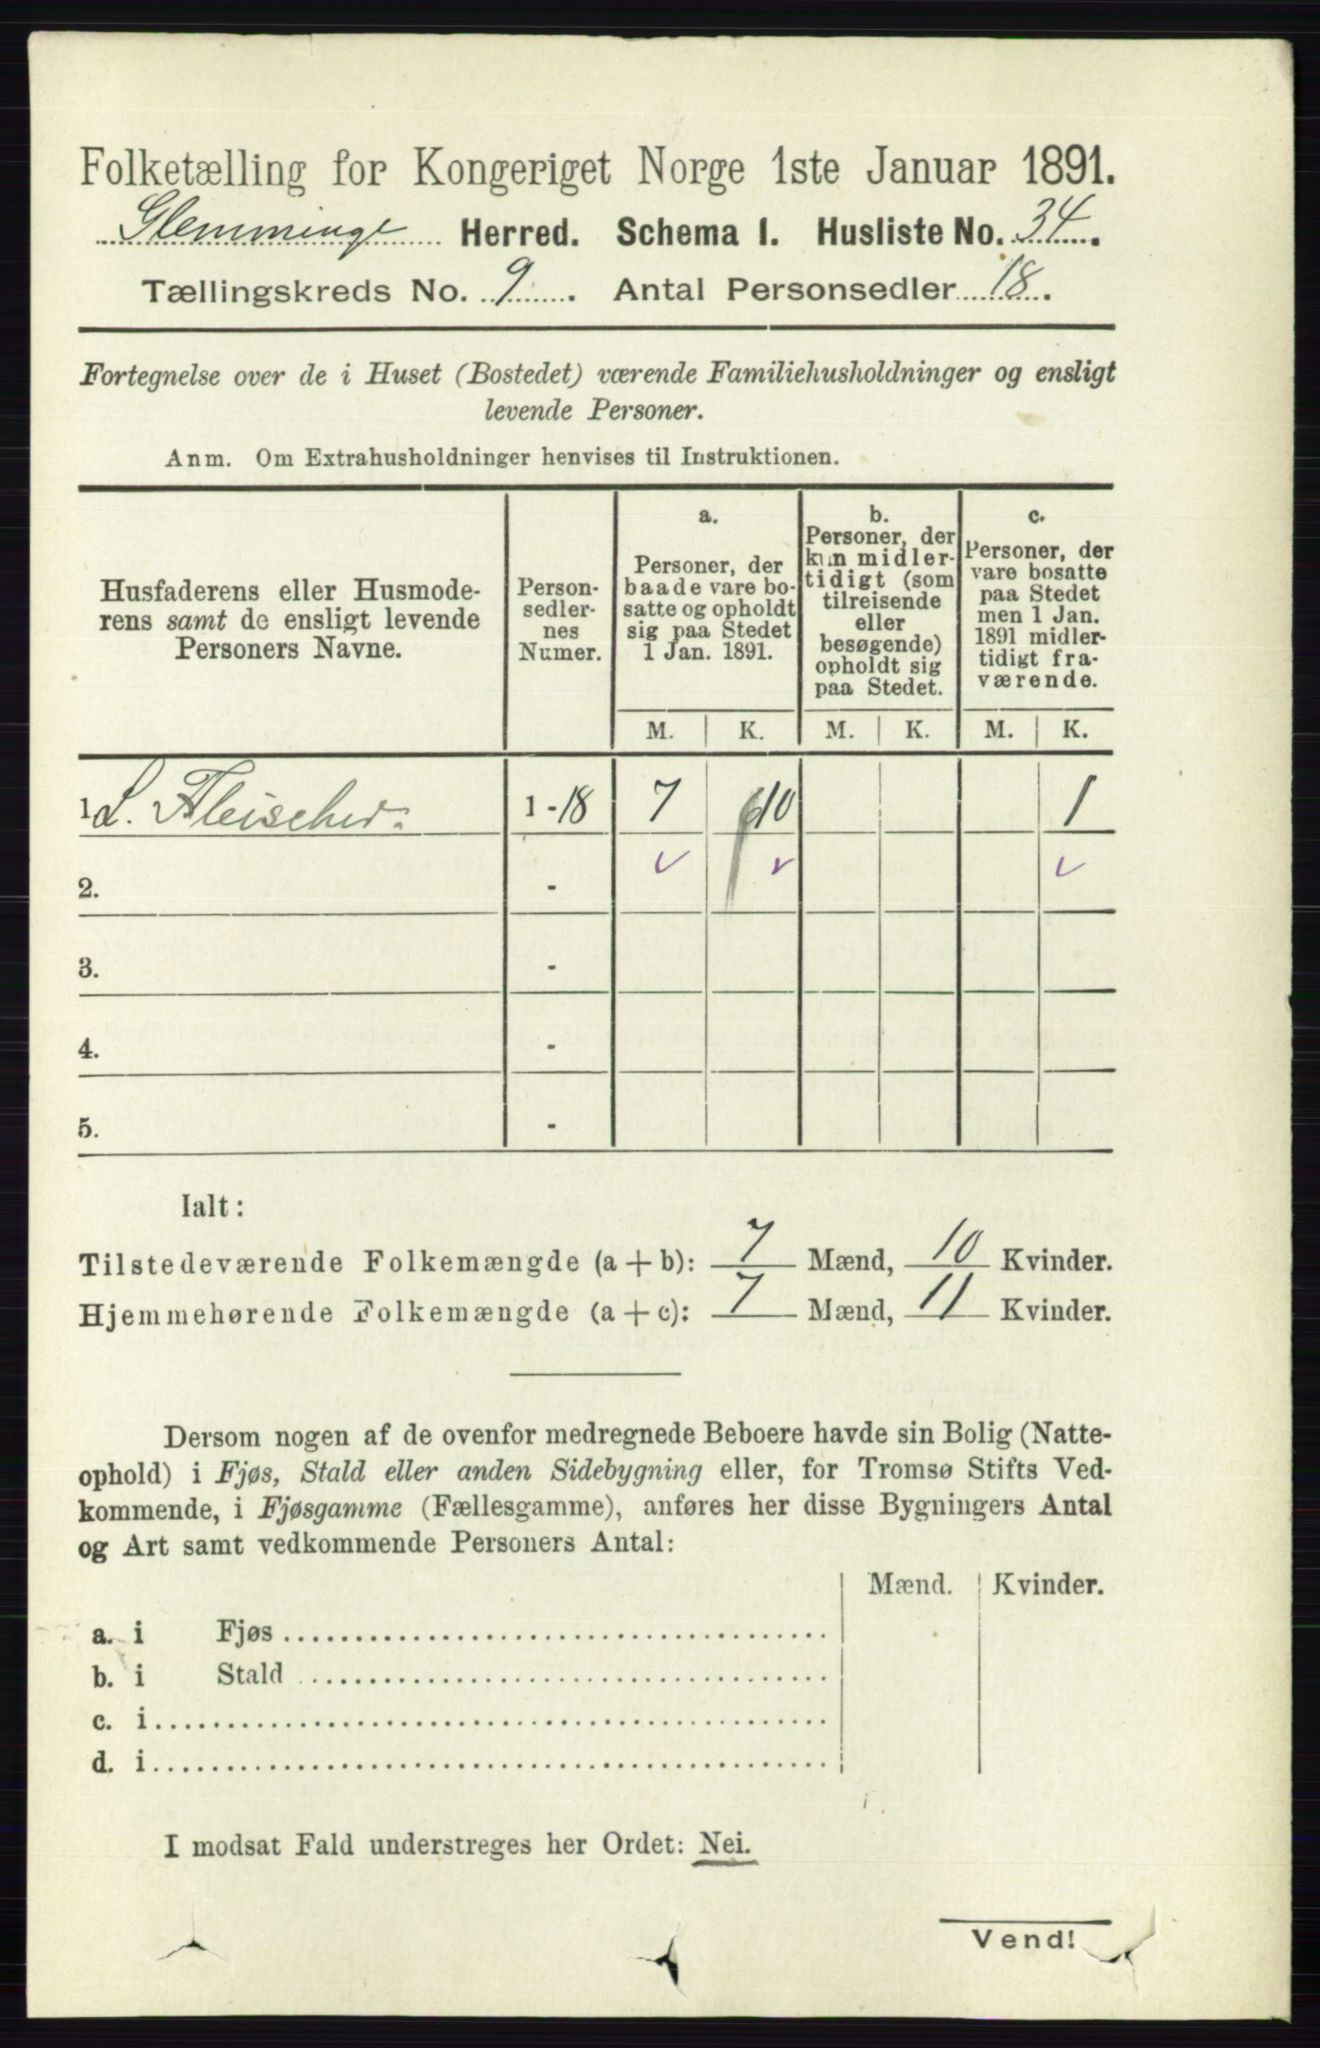 Folketælling for Kongeriget Norge 1ste Januar 1891.
Glemminge Herred. Schema I. Husliste No. 34.
Tællingskreds No. 9. Antal Personsedler 18.
Fortegnelse over de i Huset (Bostedet) værende Familiehusholdninger og ensligt
levende Personer.
Anm. Om Extrahusholdninger henvises til Instruktionen.
Husfaderens eller Husmode-
rens samt de ensligt levende
Personers Navne.
Person-
sedler-
nes
Numer.
a.
Personer, der
baade vare bo-
satte og opholdt
sig paa Stedet
1 Jan. 1891.
b.
Personer, der
kun midler-
tidigt (som
tilreisende
eller
besøgende)
opholdt sig
paa Stedet.
c.
Personer, der
vare bosatte
paa Stedet
men 1 Jan.
1891 midler-
tidigt fra-
værende.
M. K. M. K. M. K.
1. L. Fleischer. 1 - 18 7 10 1
2. -
3. -
4. -
5. -
Ialt:
Tilstedeværende Folkemængde (a + b): 7 Mænd, 10 Kvinder.
Hjemmehørende Folkemængde (a + c): 7 Mænd, 11 Kvinder.
Dersom nogen af de ovenfor medregnede Beboere havde sin Bolig (Natte-
ophold) i Fjøs, Stald eller anden Sidebygning eller, for Tromsø Stifts Ved-
kommende, i Fjøsgamme (Fællesgamme), anføres her disse Bygningers Antal
og Art samt vedkommende Personers Antal:
Mænd. Kvinder.
a. i Fjøs
b. i Stald
c. i
d. i
I modsat Fald understreges her Ordet: Nei.
Vend!